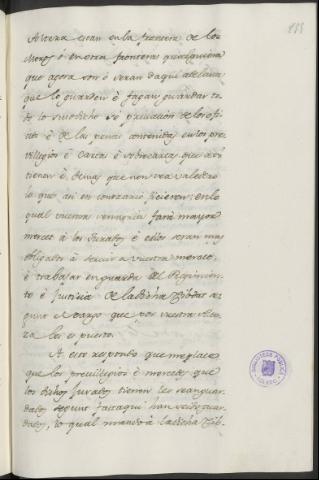 Alteza esten en la frontera de los
Moros ó en otra frontera qualquiera
que agora son ó seran daqui adelante
que lo guarden é fagan guardar to
do lo susodicho só privacion de los ofi
cios é de las penas contenidas en los pre
villegios é cartas é sobrecartas que aosi
tienen é demas que non vala
lo que asi en contrario ficieren en lo
qual vuestra señoria fará mayor
merced á los Jurados é ellos seran mas
obligados á servir a vuestra merced
é trabajar en guarda del Regimien
to é Justicia de la dicha Cibdat se
gunt el cargo que por vuestra Alte
za les es puesto.
A esto respondo que me place
que los previllegios é mercedes que
los dichos Jurados tienen les sean guar
dados segunt fasta aqui han seido guar
dados, lo qual mando á la dicha Cib-
BIBLIOTECA PUBLICA
TOLEDO